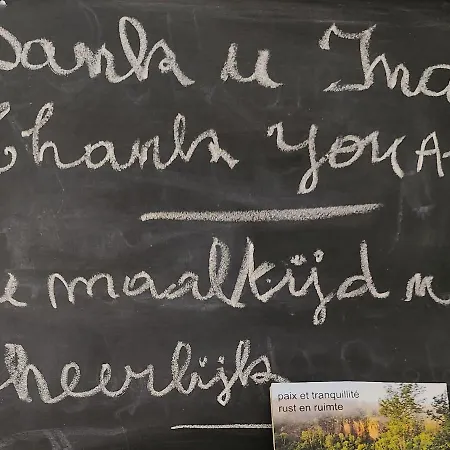 Dank u Ina
Thank you A
maaltijd
heerlijk
paix et tranquillité
rust en ruimte